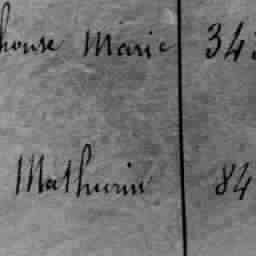 house Marie 343
Mathurin 84